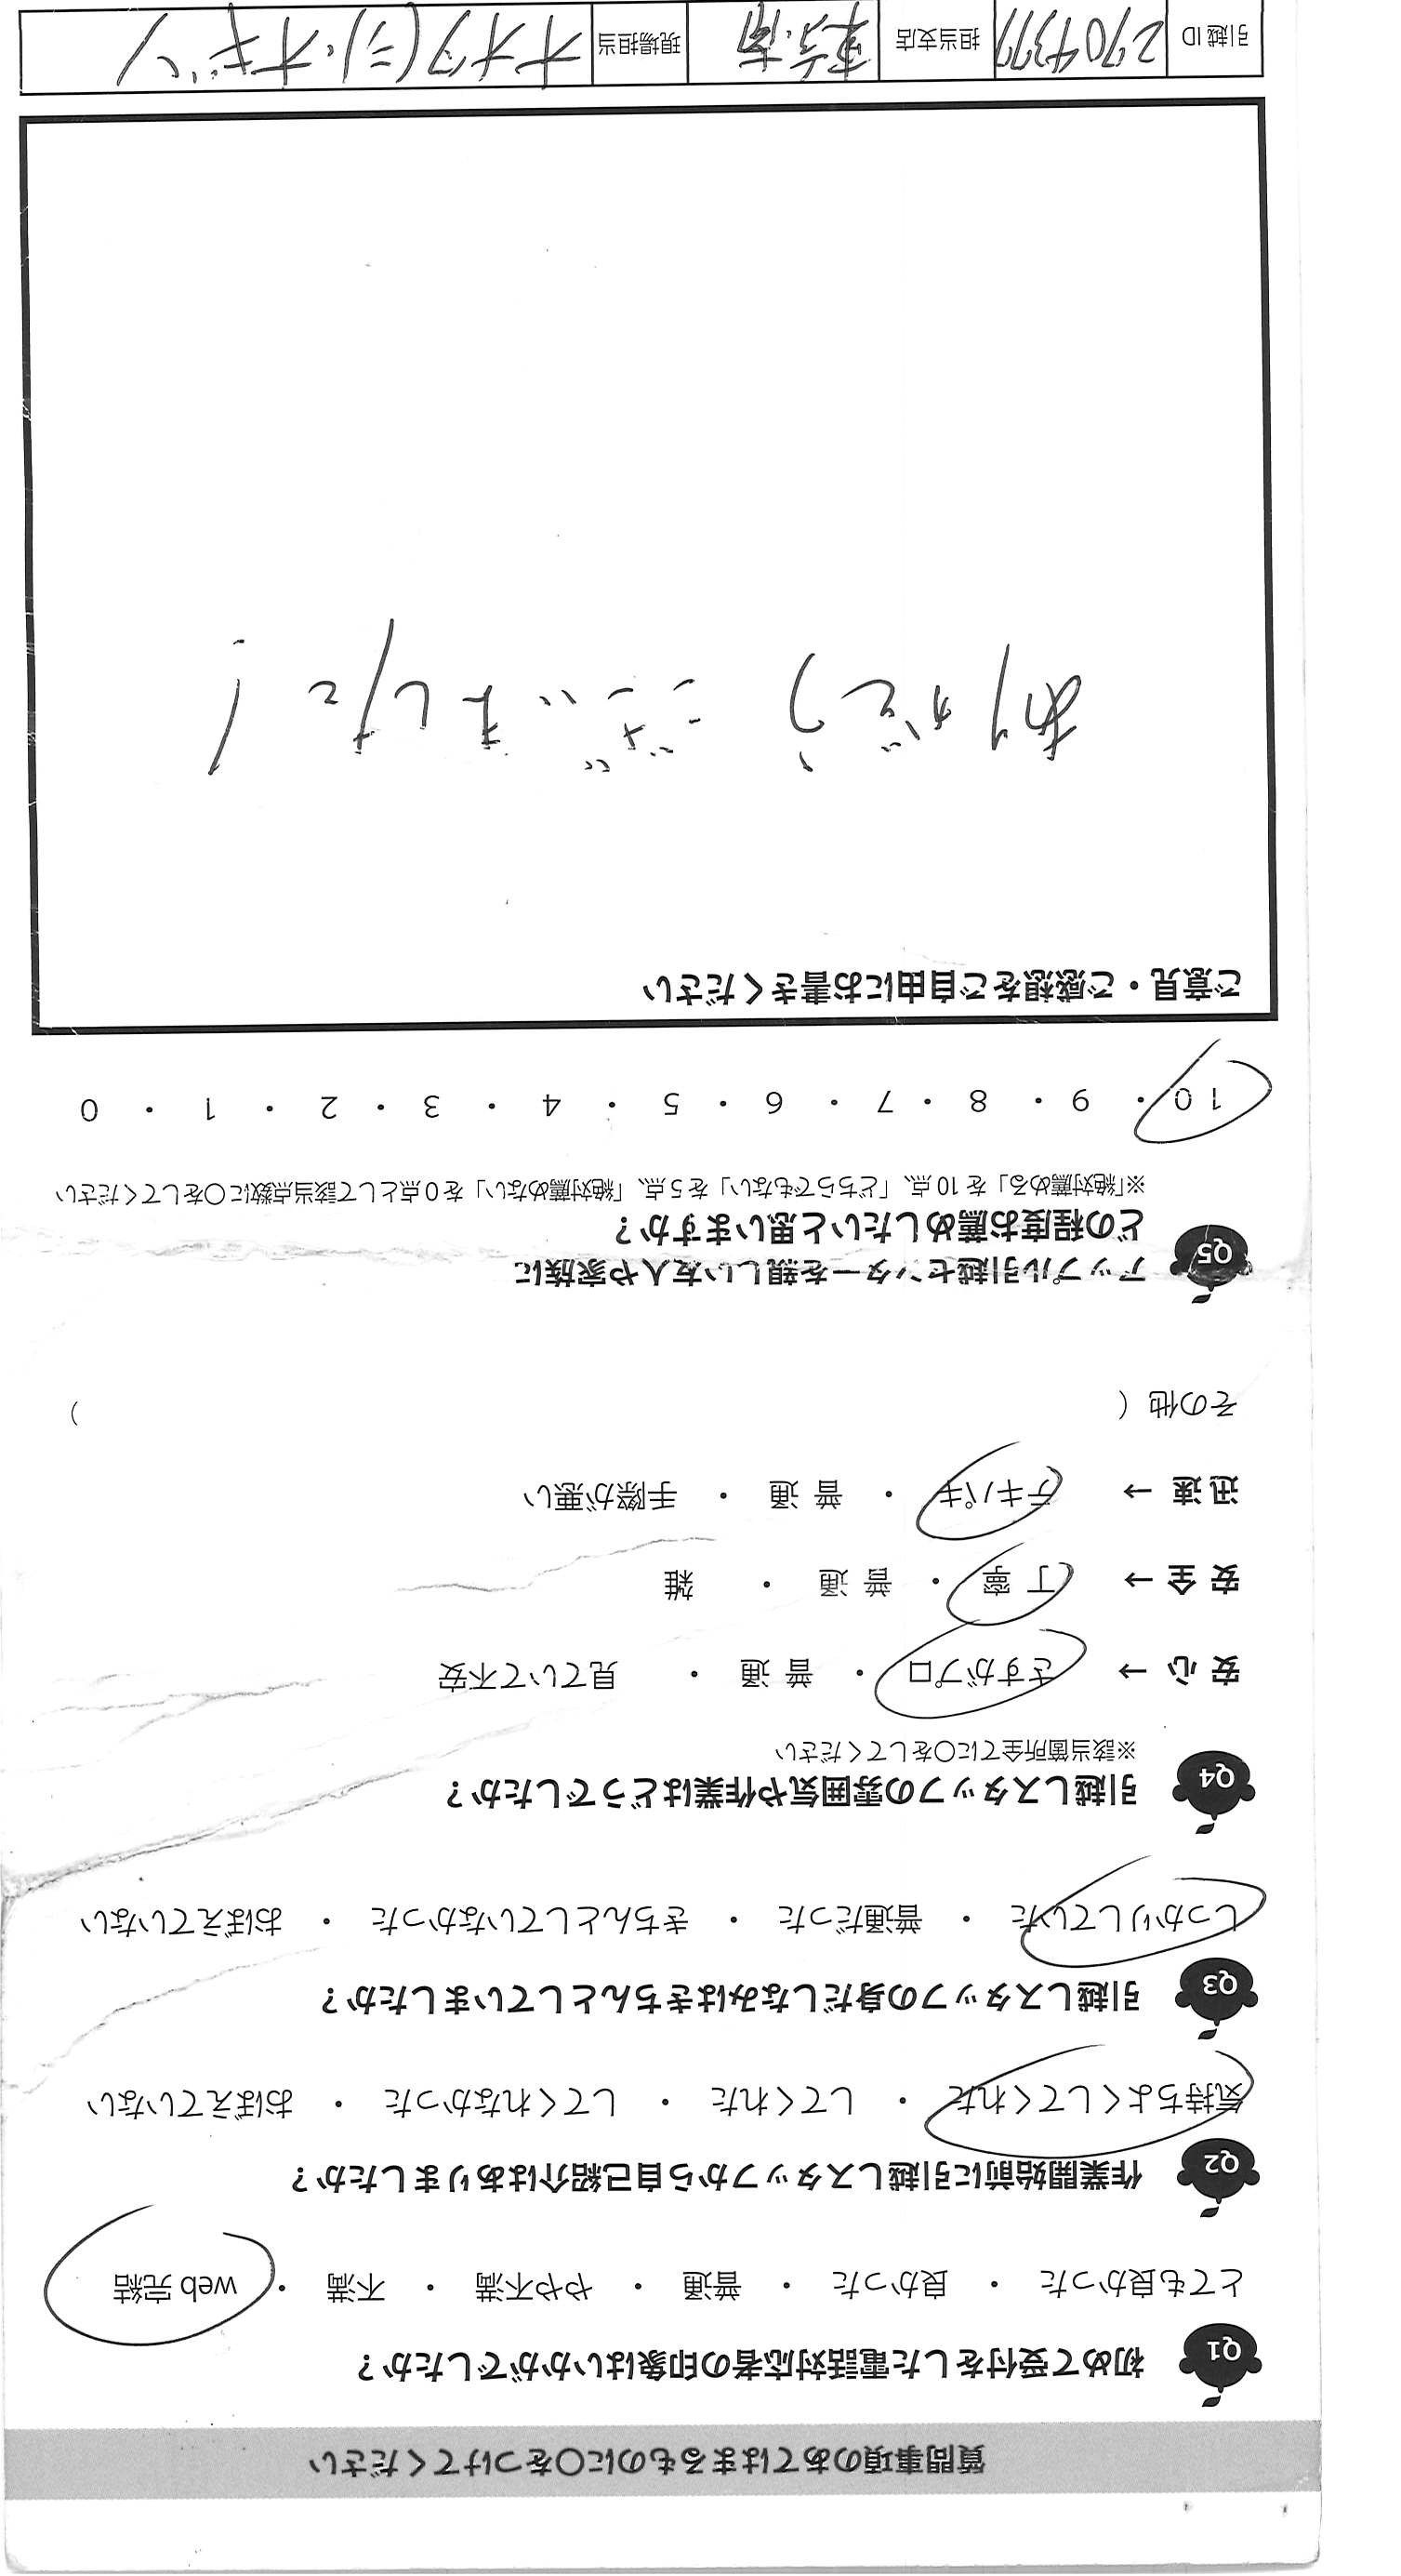 質問事項のあてはまるものに〇をつけてください
Q1 初めて受付をした電話対応者の印象はいかがでしたか？
とても良かった ・ 良かった ・ 普通 ・ やや不満 ・ 不満 ・ web 完結
Q2 作業開始前に引越しスタッフから自己紹介はありましたか？
気持ちよくしてくれた ・ してくれた ・ してくれなかった ・ おぼえていない
Q3 引越しスタッフの身だしなみはきちんとしていましたか？
しっかりしていた ・ 普通だった ・ きちんとしていなかった ・ おぼえていない
Q4 引越しスタッフの雰囲気や作業はどうでしたか？
※該当箇所全てに〇をしてください
安 心 → さすがプロ ・ 普 通 ・ 見ていて不安
安 全 → 丁 寧 ・ 普 通 ・ 雑
迅 速 → テキパキ ・ 普 通 ・ 手際が悪い
その他（ ）
Q5 アップル引越センターを親しい友人や家族に
どの程度お薦めしたいと思いますか？
※「絶対薦める」を 10 点、「どちらでもない」を 5 点、「絶対薦めない」を 0 点として該当点数に〇をしてください
10 ・ 9 ・ 8 ・ 7 ・ 6 ・ 5 ・ 4 ・ 3 ・ 2 ・ 1 ・ 0
ご意見・ご感想をご自由にお書きください
ありがとうございました！
引越 ID 担当支店 東京南 現場担当